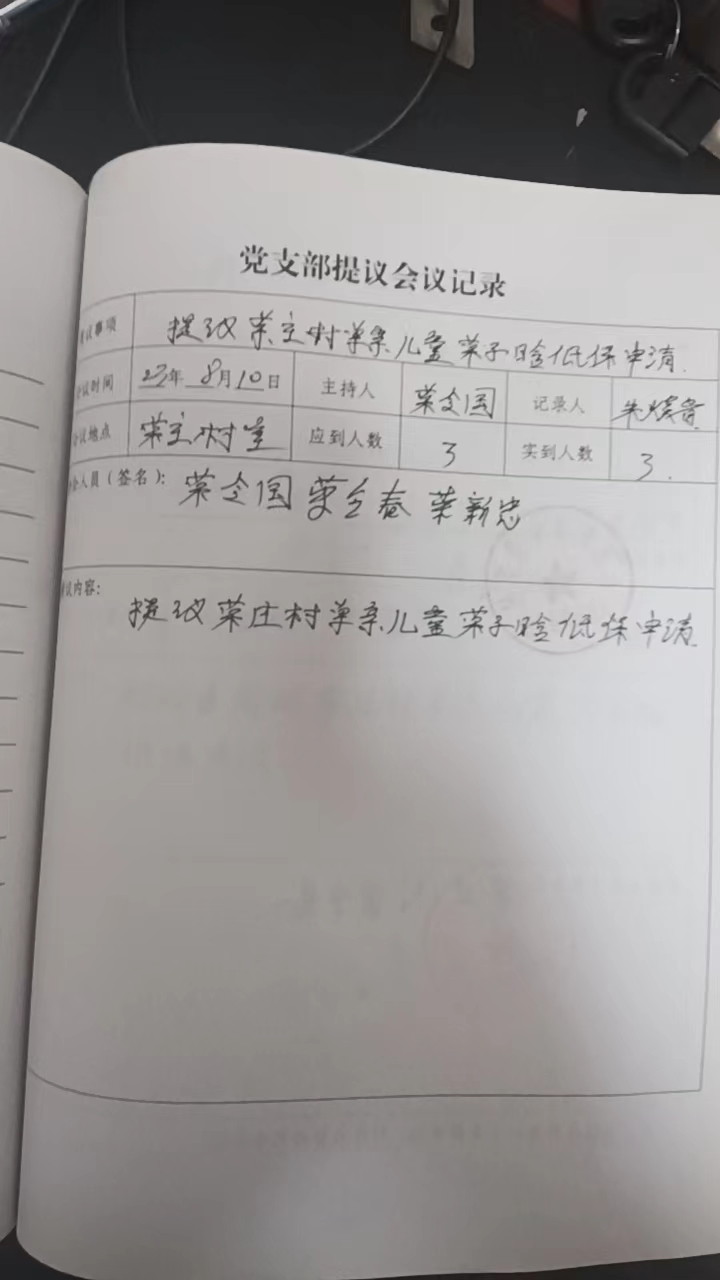 党支部提议会议记录
议事项 提议菜庄村单亲儿童菜子晗低保申请.
会议时间 23年 8月10日 主持人 菜全国 记录人 朱
会议地点 菜庄村室 应到人数 3 实到人数 3.
会人员(签名): 菜全国 菜全春 菜新忠
议内容:
提议菜庄村单亲儿童菜子晗低保申请.